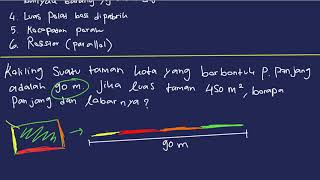 4. Luas Pelat besi dipabrik
5. Kecepatan perah
6. Resistor (parallel)
Keliling suatu taman kota yang berbentuk p. panjang
adalah 90 m. Jika luas taman 450 m², berapa
panjang dan lebarnya?
90 m